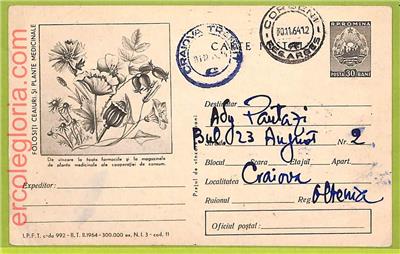 ercolegloria.com
FOLOSIȚI CEAIURI ȘI PLANTE MEDICINALE
De vînzare la toate farmaciile și la magazinele
de plante medicinale ale cooperației de consum.
Expeditor:
I.P.F.T. c-da 992 - B.T. II.1964 - 300.000 ex. N.I. 3 - cod. 11
CRAIOVA
CARTE
CORBENI
30.11.64 12
REG. ARGEȘ
R.P. ROMINA
POSTA 30 BANI
Destinatar Ady Pantazi
Bul. 23 August Nr. 2
Blocul Scara Etajul Apart.
Localitatea Craiova
Raionul Reg. Oltenia
Oficiul poștal: